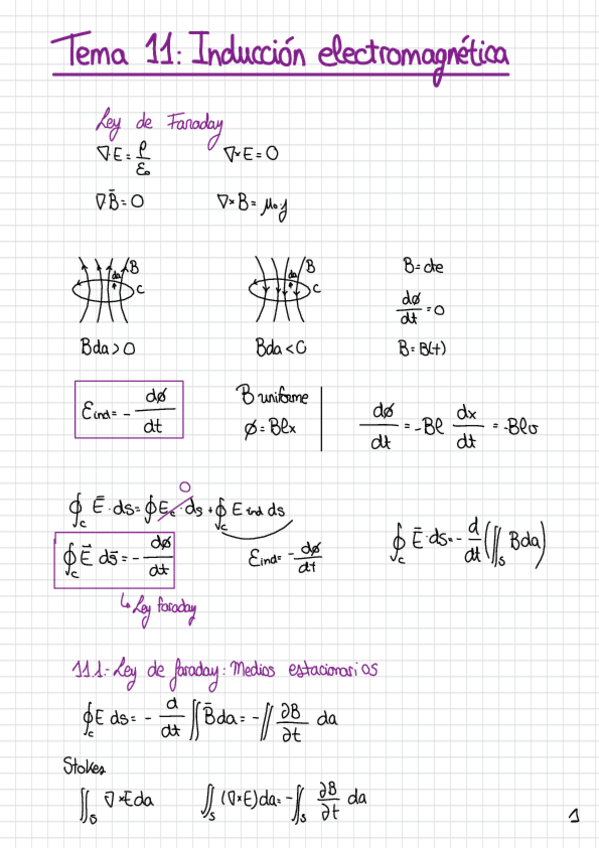 Tema 11: Inducción electromagnética
Ley de Faraday
∇·E = ρ/ε₀    ∇×E = 0
∇·B̄ = 0    ∇×B = μ₀·j
B    B    B = cte
da    da
C    C    dφ/dt = 0
Bda > 0    Bda < 0    B = B(t)
Ɛind = - dφ/dt    B uniforme
φ = Blx    dφ/dt = -Bl dx/dt = -Blv
∮c Ē·ds = ∮Ec·ds + ∮c Eind ds    0
∮c Ē ds̄ = - dφ/dt    Ɛind = - dφ/dt    ∮c Ē·ds = - d/dt (∬s Bda)
↳ Ley faraday
11.1.- Ley de faraday: Medios estacionarios
∮c E ds = - d/dt ∬ B̄da = - ∬ ∂B/∂t da
Stokes
∬s ∇×Eda    ∬s (∇×E)da = -∬s ∂B/∂t da
1